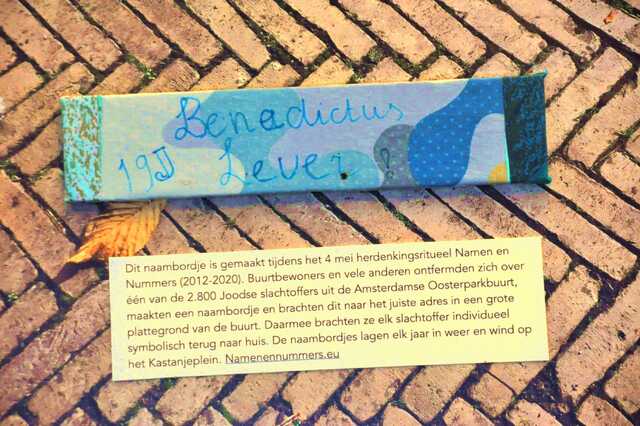 Benedictus
19JJ Lever ?
Dit naambordje is gemaakt tijdens het 4 mei herdenkingsritueel Namen en
Nummers (2012-2020). Buurtbewoners en vele anderen ontfermden zich over
één van de 2.800 Joodse slachtoffers uit de Amsterdamse Oosterparkbuurt,
maakten een naambordje en brachten dit naar het juiste adres in een grote
plattegrond van de buurt. Daarmee brachten ze elk slachtoffer individueel
symbolisch terug naar huis. De naambordjes lagen elk jaar in weer en wind op
het Kastanjeplein. Namenennummers.eu